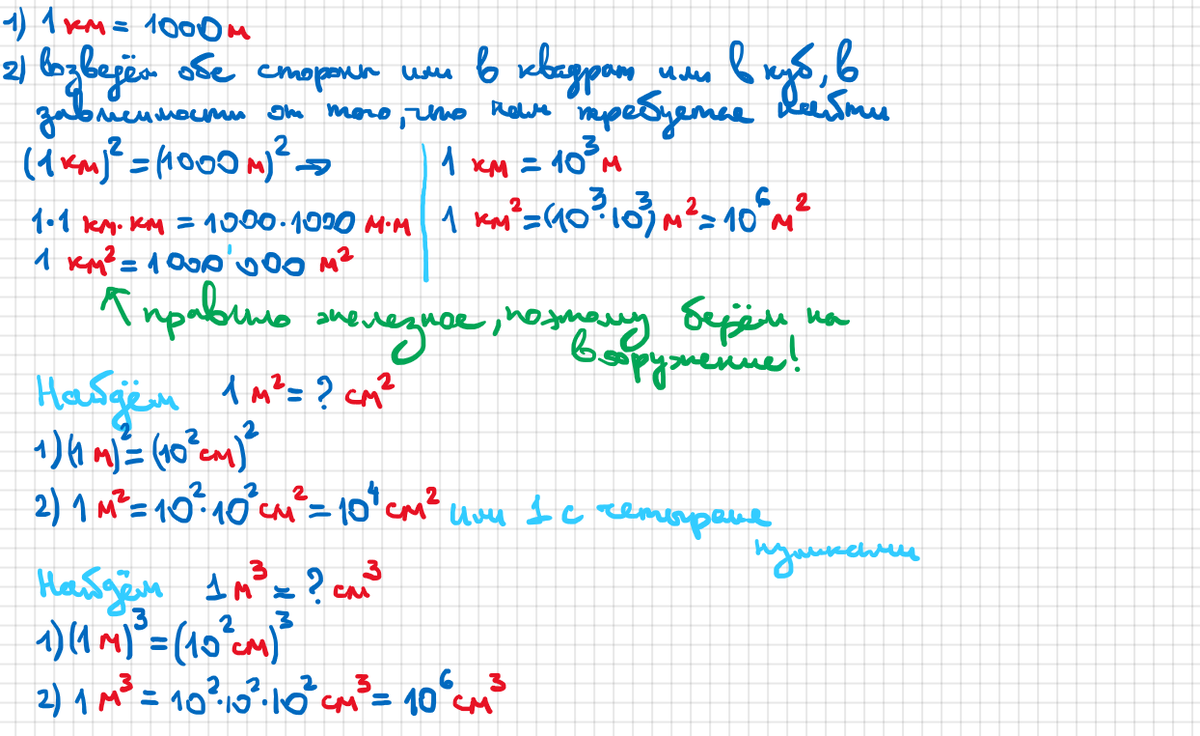 1) 1 км = 1000 м
2) Возведём обе стороны или в квадрат или в куб, в
зависимости от того, что нам требуется найти
(1 км)² = (1000 м)² ⇒
1·1 км·км = 1000·1000 м·м
1 км² = 1000'000 м²
1 км = 10³ м
1 км² = (10³·10³) м² = 10⁶ м²
правило железное, поэтому берём на
вооружение!
Найдём 1 м² = ? см²
1) (1 м)² = (10² см)²
2) 1 м² = 10²·10² см² = 10⁴ см² или 1 с четырьмя
нуликами
Найдём 1 м³ = ? см³
1) (1 м)³ = (10² см)³
2) 1 м³ = 10²·10²·10² см³ = 10⁶ см³